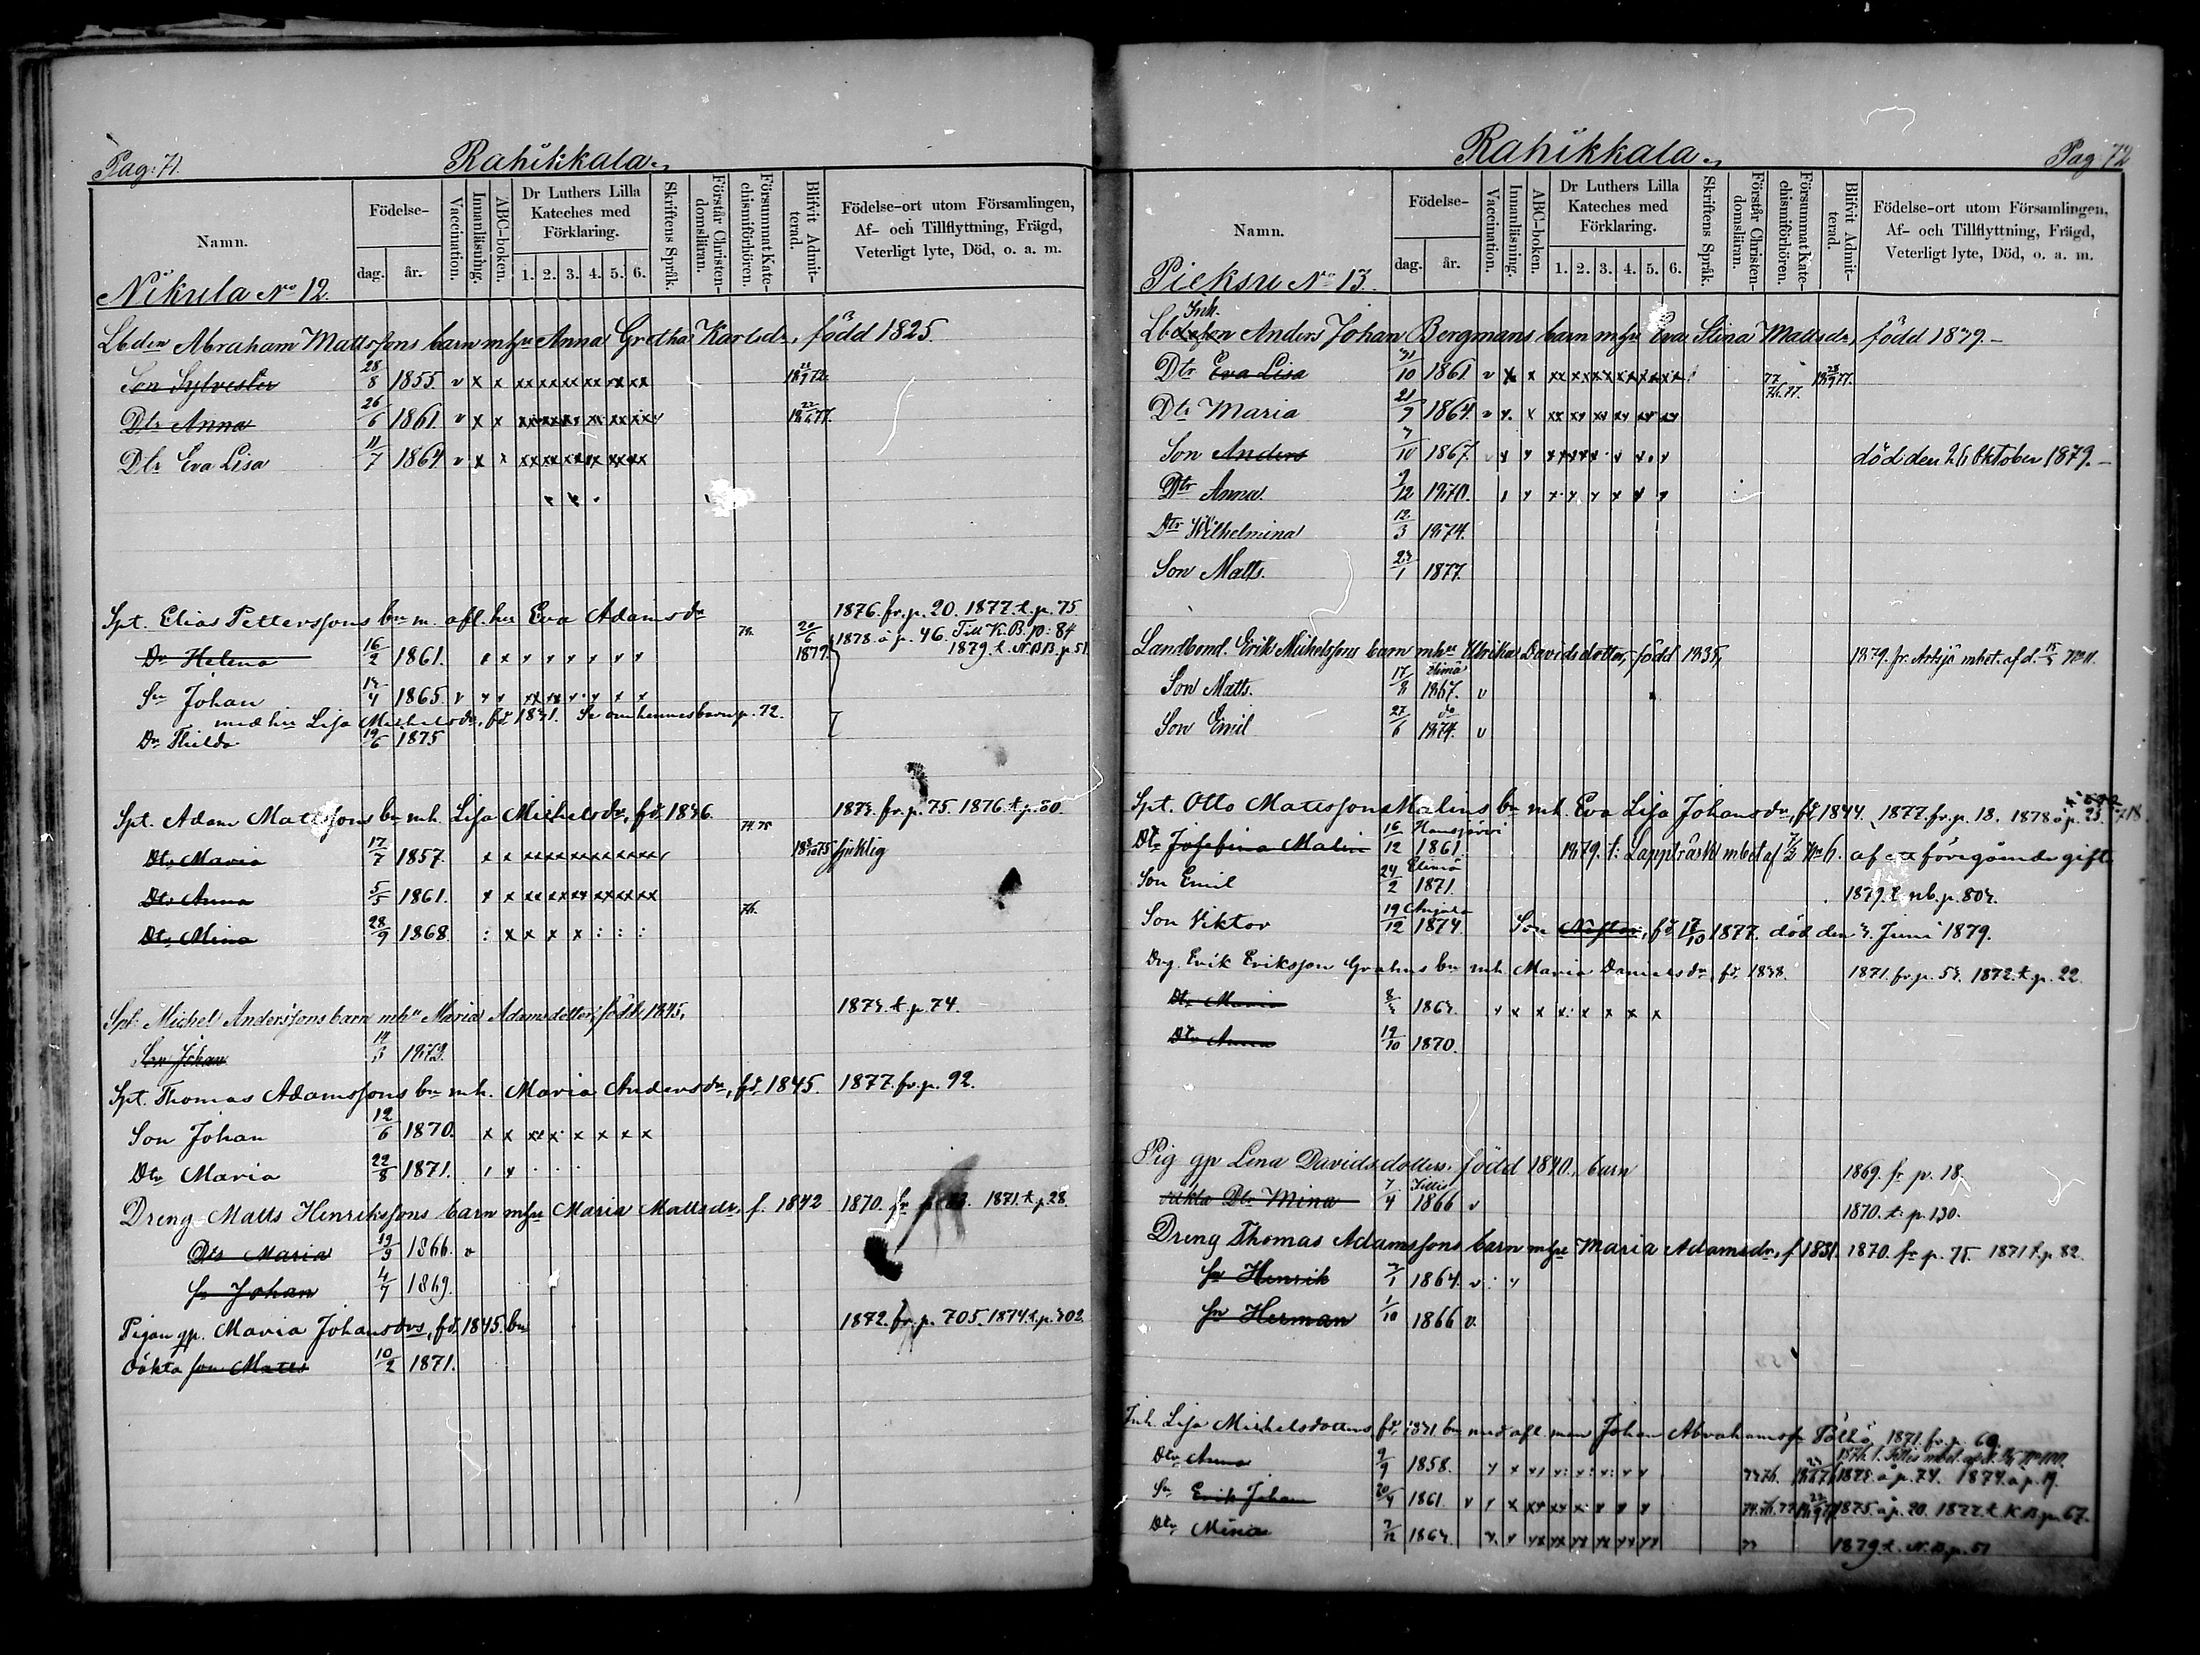 Pag: 71.
Rahikkala.
Namn.
Födelse-
dag.
år.
Vaccination.
Innanläsning.
ABC-boken.
Dr Luthers Lilla Kateches med Förklaring.
1. 2. 3. 4. 5. 6.
Skriftens Språk.
Förstår Christendomsläran.
Försummat Katechismiförhören.
Blifvit Admitterad.
Födelse-ort utom Församlingen,
Af- och Tillflyttning, Frägd,
Veterligt lyte, Död, o. a. m.
Nikula No 12.
Lbden Abraham Mattssons barn m hu Anna Gretha Karlsdr, född 1825.
Son Sylvester 28/8 1855 v x x
Dtr Anna 26/6 1861 v x x
Dtr Eva Lisa 11/7 1864 v x x
Spt. Elias Petterssons bn m. afl. hu Eva Adamsdr 1876. fr. p. 20. 1877. t. p. 75
Dr Helena 16/2 1861. 20/6 1879. 1878 å p. 46. Till K.B. p: 84
1879. t. N.B.B. p. 51
Sn Johan 1865 v
med hu Lisa Michelsdr, fd. 1831. Se om hennes barn p. 72.
Dr Thilda 19/6 1875
Spt. Adam Mattssons bn mh. Lisa Michelsdr, fd. 1836. 1873. fr. p. 75. 1876. t. p. 30.
74. 75
Dtr Maria 17/7 1857. sjuklig
Dtr Anna 5/5 1861.
76.
Dtr Mina 28/9 1868
Spt. Michel Anderssons barn m hu Maria Adamsdotter, född 1845, 1873. t. p. 74.
Son Johan 1873.
Spt. Thomas Adamssons bn mh. Maria Andersdr, fd. 1845. 1877. fr. p. 92.
Son Johan 12/6 1870. x x
Dtr Maria 22/8 1871.
Dreng Matts Henrikssons barn m hu Maria Mattsdr, f. 1842 1870. fr p. 1871. t. p. 28.
Dtr Maria 19/9 1866. v
Sn Johan 4/7 1869.
Pigan gp. Maria Johansdrs, fd. 1845. bn 1872. fr. p. 705. 1874. t. p. 302.
Oäkta son Matts 10/2 1871.
Rahikkala.
Pag: 72
Namn.
Födelse-
dag.
år.
Vaccination.
Innanläsning.
ABC-boken.
Dr Luthers Lilla Kateches med Förklaring.
1. 2. 3. 4. 5. 6.
Skriftens Språk.
Förstår Christendomsläran.
Försummat Katechismiförhören.
Blifvit Admitterad.
Födelse-ort utom Församlingen,
Af- och Tillflyttning, Frägd,
Veterligt lyte, Död, o. a. m.
Pieksu No 13.
Inh.
Anders Johan Bergmans barn m hu Eva Stina Mattsdr, född 1839.
Dtr Eva Lisa 1861 v x x
Dtr Maria 1864. v x x
Son Anders 7/10 1867. död den 26 Oktober 1879.
Dtr Anna. 9/12 1870.
Dtr Wilhelmina 12/3 1874.
Son Matts. 1877.
Landbond. Erik Michelssons barn m hu Ulrika Davidsdotter, född 1835, 1879. fr. Artsjö mbet. af d.
Son Matts. 17/8 Elimä 1867. v
Son Emil 27/6 do 1874. v
Spt. Otto Mattssons Malins bn mh. Eva Lisa Johansdr, fd 1844. 1877. fr. p. 18. 1878 å p. 25.
Dtr Josefina Malin 16/12 1861 1879. t. Lappträsk mbet af
Son Emil 24/2 Elimä 1871. 1879. t. nb. p. 803.
Son Viktor 19/12 Anjala 1874. Son Nestor, fd. 1877. död den 3. Juni 1879.
Drg. Erik Eriksson Grahns bn mh. Maria Danielsdr, fd. 1838. 1871. fr. p. 53. 1872. t. p. 22.
Dtr Maria 1863.
Dtr Anna 1870.
Pig gp Lena Davidsdotters. född 1840., barn 1869. fr p. 18
oäkta Dtr Mina 7/4 Iittis 1866 v 1870. t. p. 130.
Dreng Thomas Adamssons barn m hu Maria Adamsdr, f 1831. 1870. fr p. 75. 1871 t. p. 82.
Sn Henrik 1864. v
Sn Herman 1/10 1866 v.
Inh. Lisa Michelsdotters, fd. 1831 bn med afl. man Johan Abrahamss. 1871. fr. p. 69.
Dtr Anna 9/9 1858. 1873. å p. 74. 1874. å p. 19.
Sn Erik Johan 20/4 1861. 1875. å p. 20. 1877. t. K.B. p. 67.
Dtr Mina 1863. 1879. t. N.B. p. 51